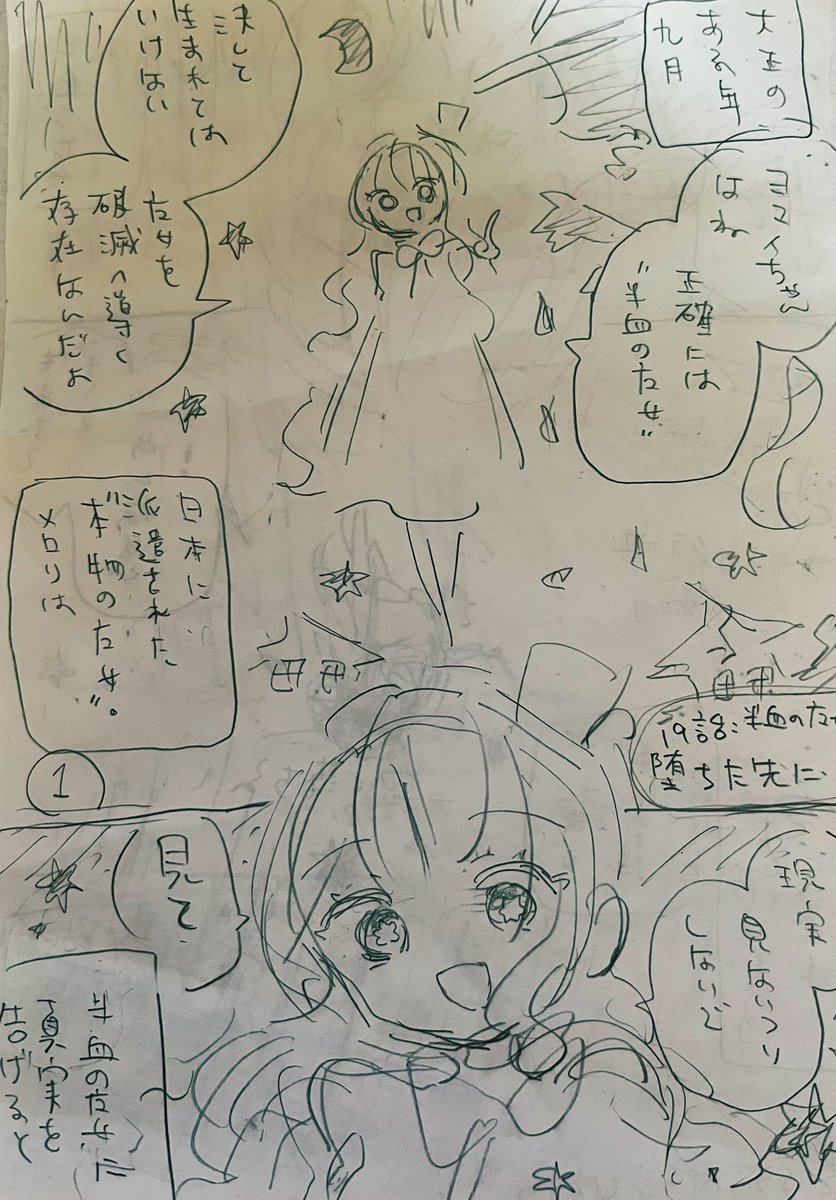 大正の
ある年
九月
ヨマイちゃん
はね
正確には
"半血のた女"
決して
生まれては
いけない
た女を
破滅へ導く
存在なんだよ
日本に
派遣された
"本物のた女"。
メロリは
1
半血のた
堕ちた先に
現実
見ないつり
しないで
見て
半血のた女に
真実を
告げると